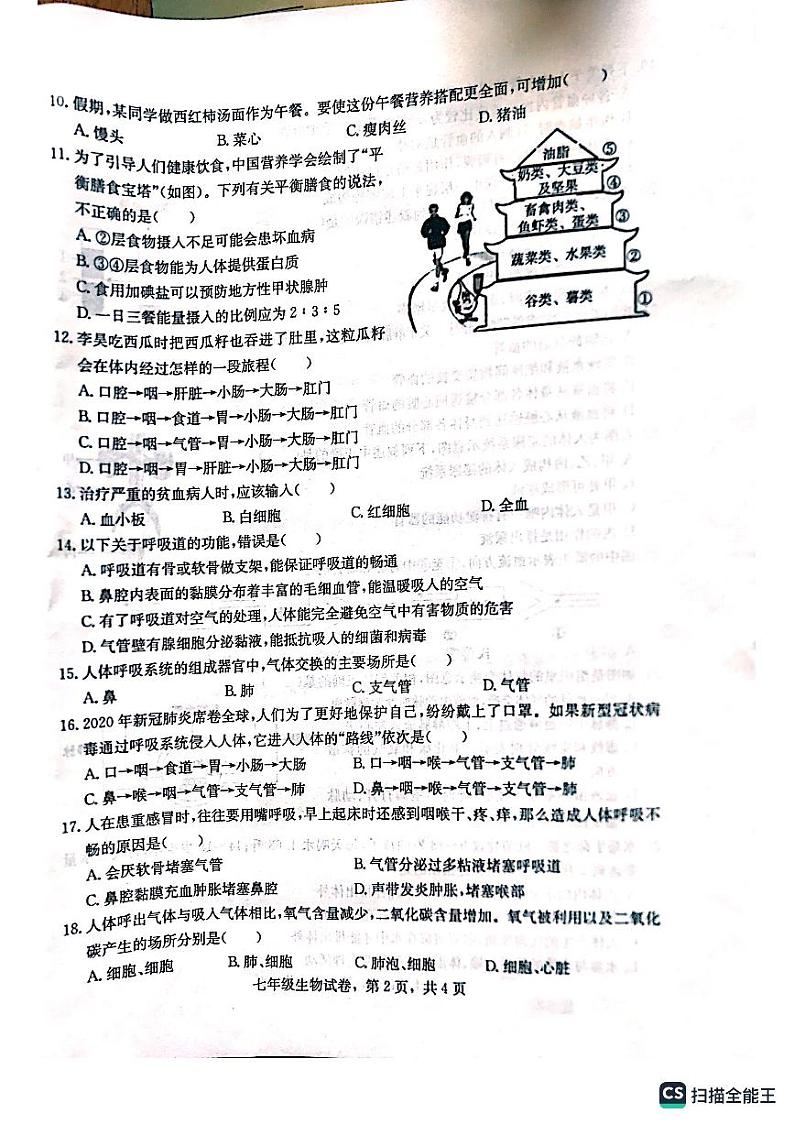 10. 假期,某同学做西红柿汤面作为午餐。要使这份午餐营养搭配更全面,可增加(　　)
A. 馒头　　B. 菜心　　C. 瘦肉丝　　D. 猪油
11. 为了引导人们健康饮食,中国营养学会绘制了“平
衡膳食宝塔”(如图)。下列有关平衡膳食的说法,
不正确的是(　　)
A. ②层食物摄入不足可能会患坏血病
B. ③④层食物能为人体提供蛋白质
C. 食用加碘盐可以预防地方性甲状腺肿
D. 一日三餐能量摄入的比例应为 2∶3∶5
油脂 ⑤
奶类、大豆类
及坚果 ④
畜禽肉类、
鱼虾类、蛋类 ③
蔬菜类、水果类 ②
谷类、薯类 ①
12. 李昊吃西瓜时把西瓜籽也吞进了肚里,这粒瓜籽
会在体内经过怎样的一段旅程(　　)
A. 口腔→咽→肝脏→小肠→大肠→肛门
B. 口腔→咽→食道→胃→小肠→大肠→肛门
C. 口腔→咽→气管→胃→小肠→大肠→肛门
D. 口腔→咽→胃→肝脏→小肠→大肠→肛门
13. 治疗严重的贫血病人时,应该输入(　　)
A. 血小板　　B. 白细胞　　C. 红细胞　　D. 全血
14. 以下关于呼吸道的功能,错误是(　　)
A. 呼吸道有骨或软骨做支架,能保证呼吸道的畅通
B. 鼻腔内表面的黏膜分布着丰富的毛细血管,能温暖吸入的空气
C. 有了呼吸道对空气的处理,人体能完全避免空气中有害物质的危害
D. 气管壁有腺细胞分泌黏液,能抵抗吸入的细菌和病毒
15. 人体呼吸系统的组成器官中,气体交换的主要场所是(　　)
A. 鼻　　B. 肺　　C. 支气管　　D. 气管
16. 2020 年新冠肺炎席卷全球,人们为了更好地保护自己,纷纷戴上了口罩。如果新型冠状病
毒通过呼吸系统侵入人体,它进入人体的“路线”依次是(　　)
A. 口→咽→食道→胃→小肠→大肠　　B. 口→咽→喉→气管→支气管→肺
C. 鼻→喉→咽→气管→支气管→肺　　D. 鼻→咽→喉→气管→支气管→肺
17. 人在患重感冒时,往往要用嘴呼吸,早上起床时还感到咽喉干、疼、痒,那么造成人体呼吸不
畅的原因是(　　)
A. 会厌软骨堵塞气管　　B. 气管分泌过多粘液堵塞呼吸道
C. 鼻腔黏膜充血肿胀堵塞鼻腔　　D. 声带发炎肿胀,堵塞喉部
18. 人体呼出气体与吸入气体相比,氧气含量减少,二氧化碳含量增加。氧气被利用以及二氧化
碳产生的场所分别是(　　)
A. 细胞、细胞　　B. 肺、细胞　　C. 肺泡、细胞　　D. 细胞、心脏
七年级生物试卷, 第 2 页, 共 4 页
CS 扫描全能王